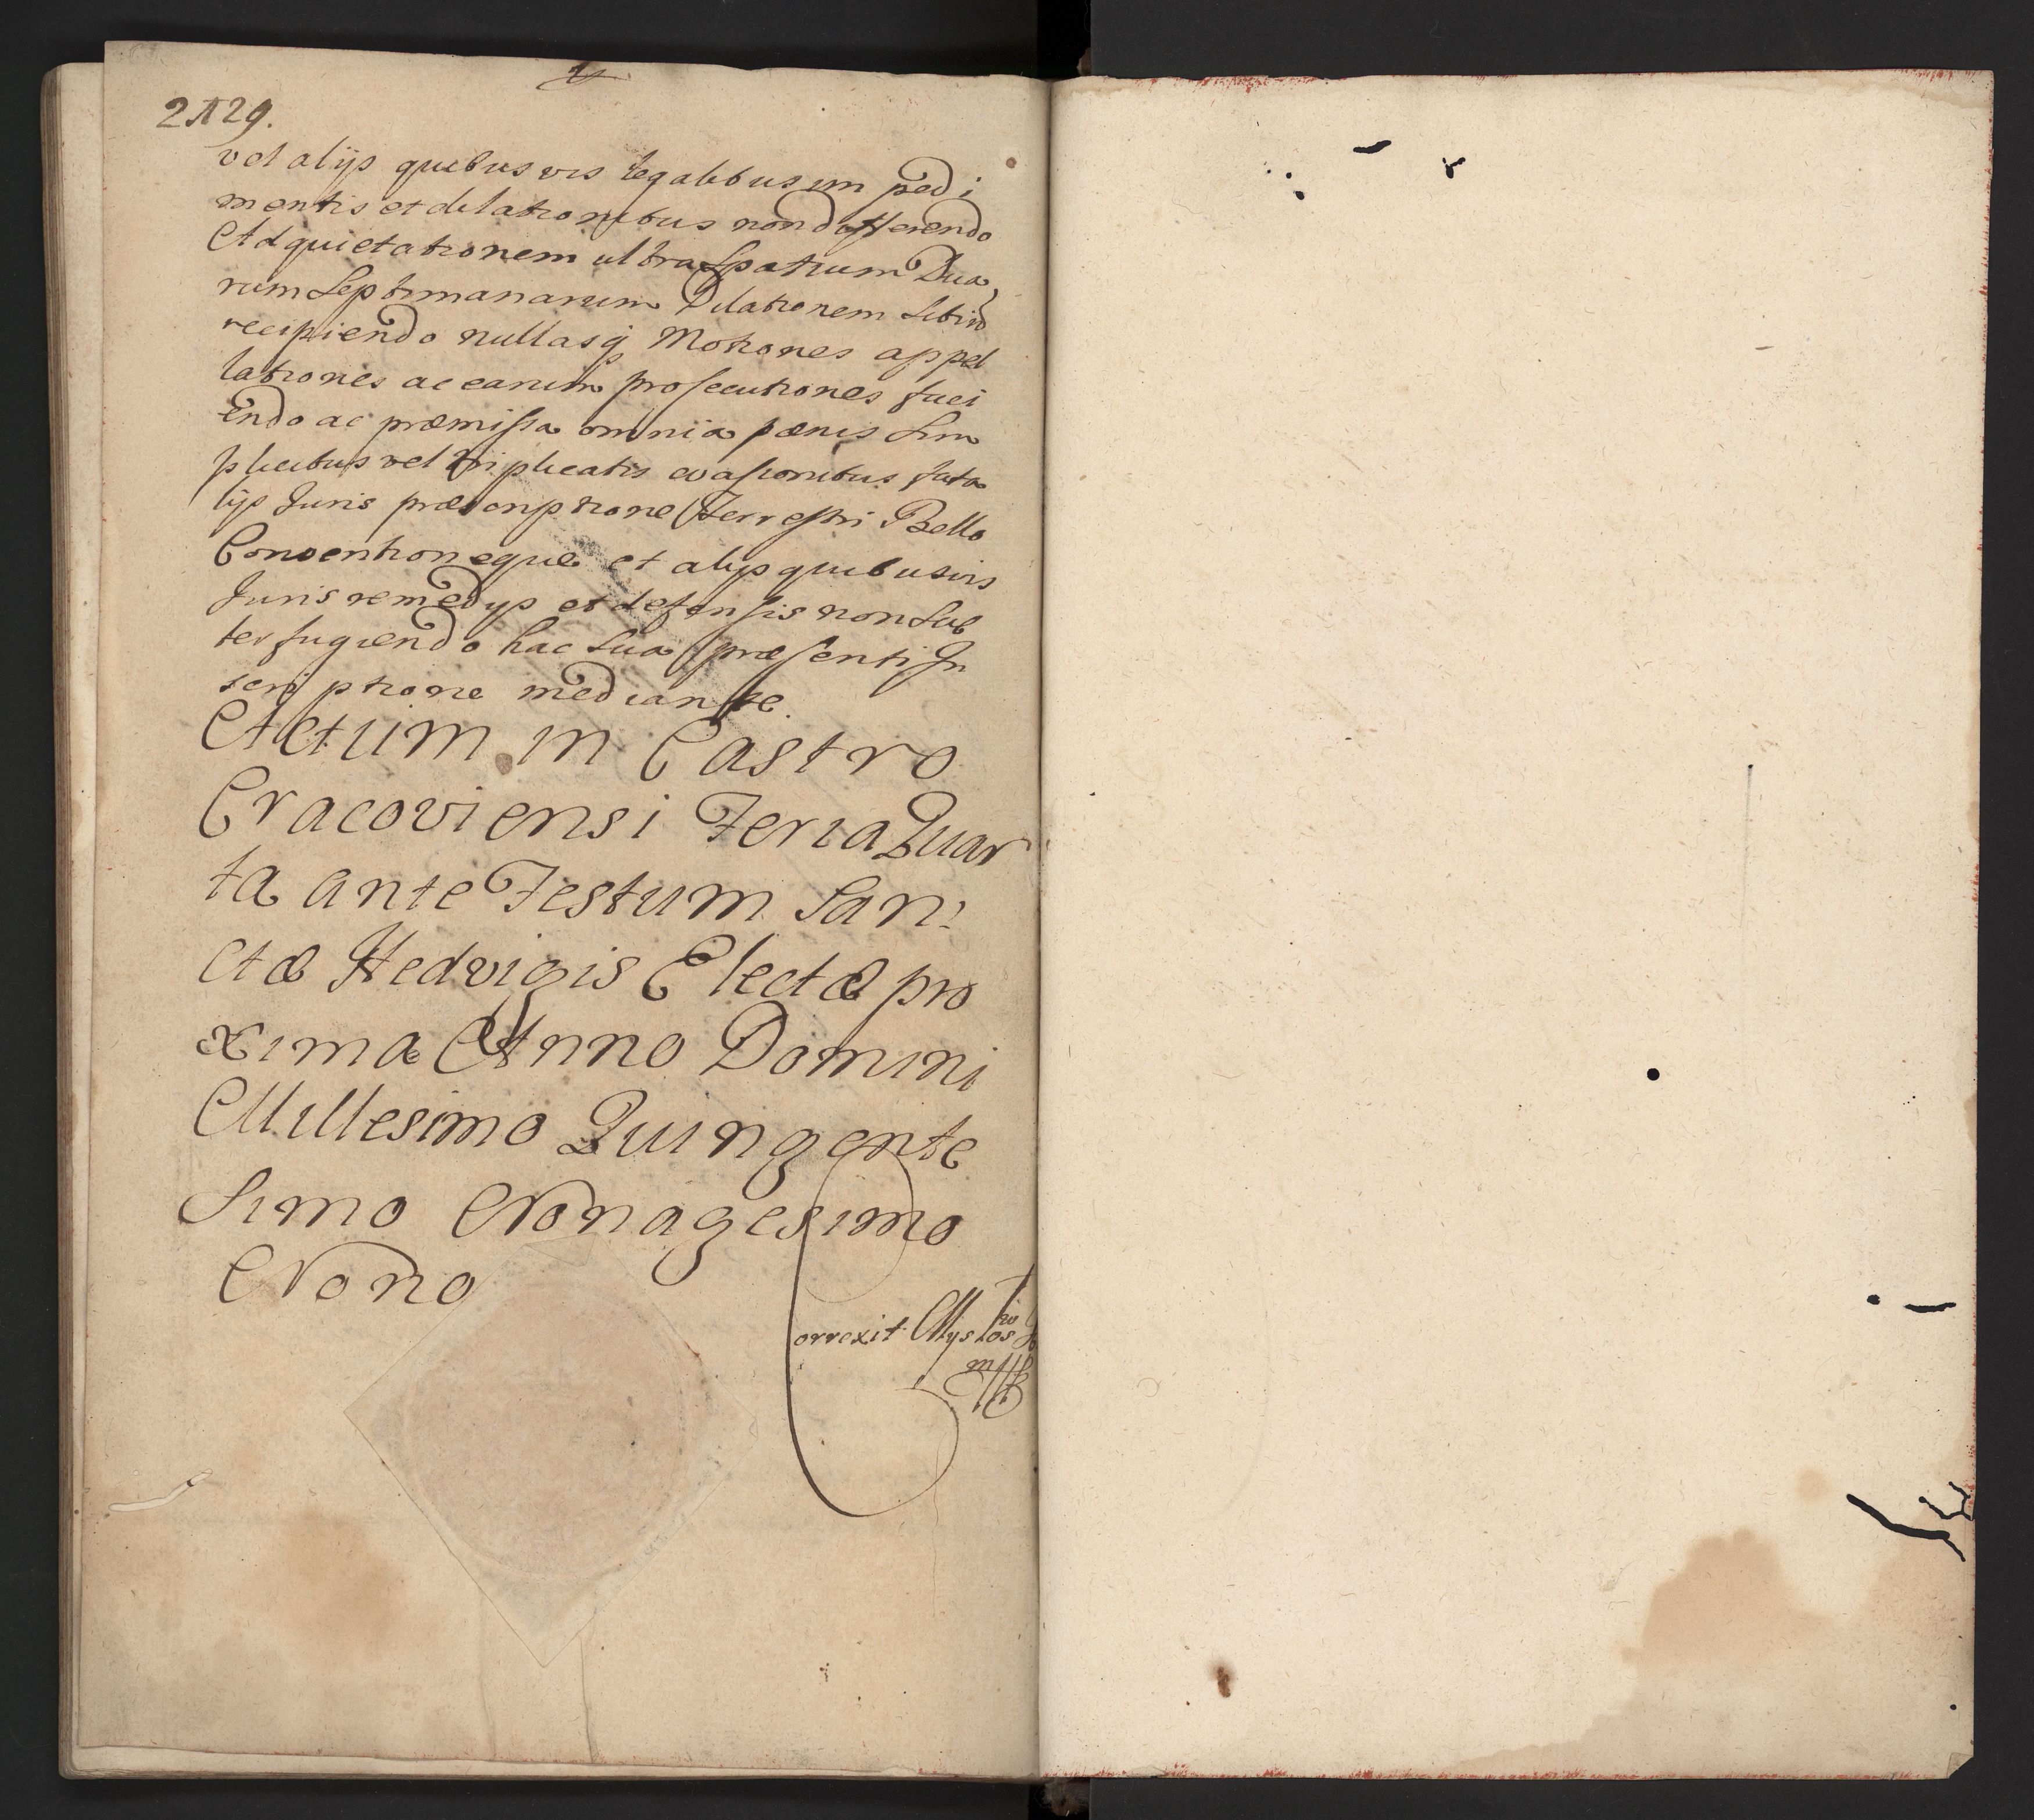 2129.
vel alijs quibusvis legalibus impedi
mentis et dilationibus non differendo
Ad quietationem ultra Spatium Dua
rum Septimanarum Dilationem Sibi nō
recipiendo nullasq́ Motiones appel
lationes ac earum prosecutiones faci
endo ac præmissa omnia pœnis Sim
plicibus vel triplicatis evasionibus fata
lijs Juris præscriptione Terrestri Bello
Conventioneque et alijs quibusvis
Juris remedijs et defensis non Sub
terfugiendo hac Sua præsenti In
scriptione mediante.
Actum in Castro
Cracoviensi Feria Quar
ta ante Festum San:
ctæ Hedvigis Electæ pro
xima Anno Domini
Millesimo Quingente
Simo Nonagesimo
Nono
Correxit